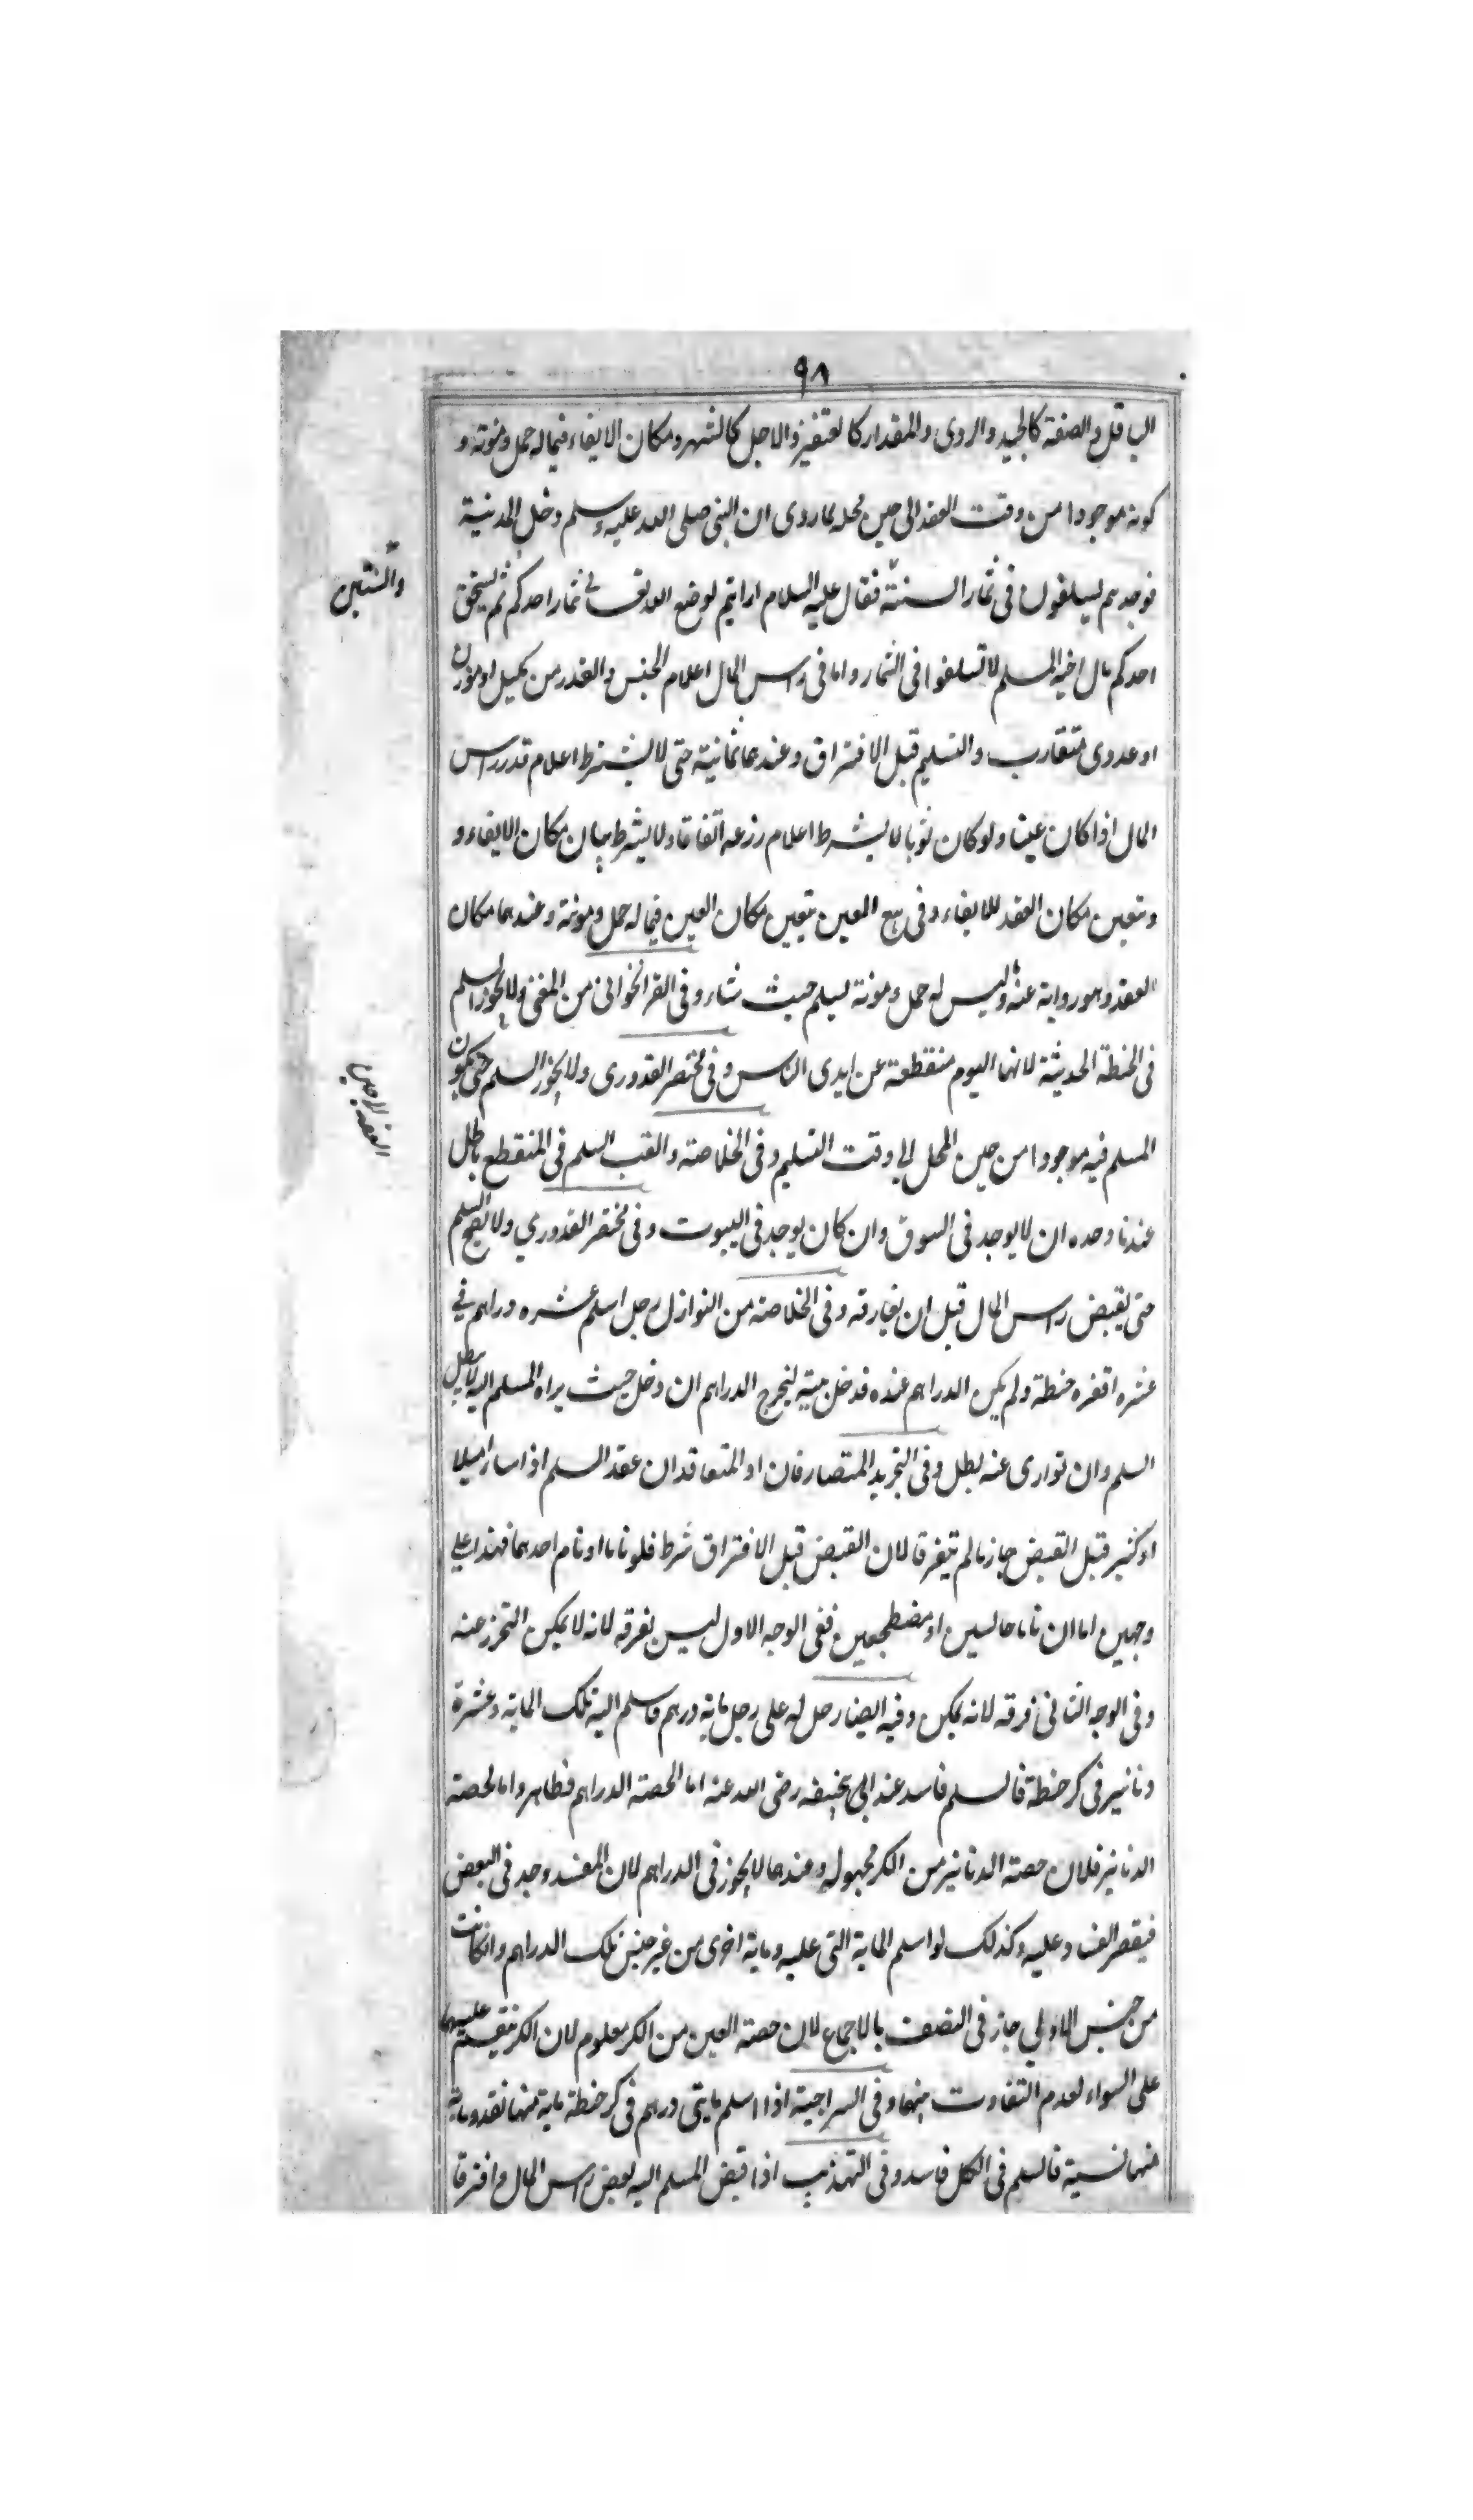 ٩٨
الباقل والصفة كالجيد والردى والمقدار كالقفيز والاجل كالشهر ومكان الايفاء فيما له حمل ومونة و
كونه موجودا من وقت العقد الى حين محله لما روى ان النبى صلى الله عليه وسلم دخل المدينة
فوجدهم يسلفون فى ثمار السنة فقال عليه السلام ارايتم لو ضع الله تعالى ثمار احدكم ثم يستحق
والسنتين
احدكم مال اخيه المسلم لا تسلفوا فى الثمار واما فى راس المال اعلام الجنس والقدر من كيل او موزون
او عددى متقارب والتسليم قبل الافتراق وعندهما ثمانية حتى لا يشترط اعلام قدر راس
المال اذا كان عينا ولو كان ثوبا لا يشترط اعلام ذرعه اتفاقا ولا يشرط بيان مكان الايفاء و
وتتعين مكان العقد للايفاء وفى بيع العين يتعين مكان العين فيما له حمل ومونة وعندهما مكان
العقد وهو رواية عنه وليس له حمل ومونة يسلم حيث شاء وفى القراخوانى من المغنى ولا يجوز السلم
فى الحنطة الحديثة لانها اليوم منقطعة عن ايدى الناس وفى مختصر القدورى ولا يجوز السلم حتى يكون
المسلم فيه موجودا من حين المحل الى وقت التسليم وفى الخلاصة السلم فى المنقطع باطل
عندنا وحده ان لا يوجد فى السوق وان كان يوجد فى البيوت وفى مختصر القدوري ولا يصح السلم
حتى يقبض راس المال قبل ان يفارقه وفى الخلاصة من النوازل رجل اسلم عشره دراهم في
عشره اقفزه حنطة ولم يكن الدراهم عنده فدخل بيته ليخرج الدراهم ان دخل حيث يراه المسلم اليه لا يبطل
السلم وان توارى عنه بطل وفى التجريد المتصارفان او المتعاقدان عقد السلم اذا سارا ميلا
او كثير قبل القبض جاز ما لم يتفرقا لان القبض قبل الافتراق شرط فلو ناما او نام احدهما فهذا على
وجهين اما ان ناما جالسين او مضطجعين ففى الوجه الاول ليس بفرقه لانه لا يمكن التحرز عنه
وفى الوجه الثانى فرقه لانه يمكن وفيه ايضا رجل له على رجل ماية درهم فاسلم اليه تلك الماية وعشرة
دنانير فى كر حنطة فالسلم فاسد عند ابى حنيفه رضى الله عنه اما الحصة الدراهم فظاهر واما لحصة
الدنانير فلان حصة الدنانير من الكر مجهوله وعندهما لا يجوز فى الدراهم لان المفسد وجد فى البعض
فيقصر الفساد عليه وكذلك لو اسلم الماية التى عليه وماية اخرى من غير جنس تلك الدراهم وان كانت
من جنس الاولي جاز فى النصف بالاجماع لان حصة العين من الكر معلوم لان الكر يقسم عليهما
على السواء لعدم التفاوت بينهما وفى السراجية اذا اسلم مايتى درهم فى كر حنطة ماية منها نقد وماية
منها نسية فالسلم فى الكل فاسد وفى التهذيب اذا قبض المسلم اليه بعض راس المال وافترقا